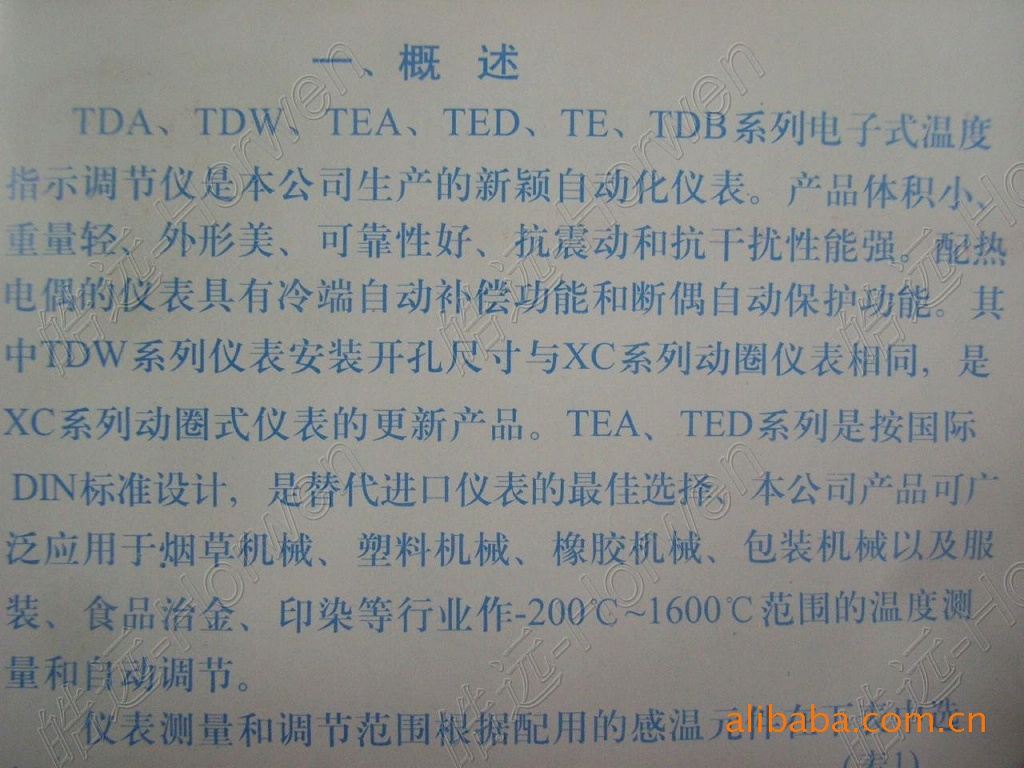 一、概 述
TDA、TDW、TEA、TED、TE、TDB系列电子式温度
指示调节仪是本公司生产的新颖自动化仪表。产品体积小、
重量轻、外形美、可靠性好、抗震动和抗干扰性能强。配热
电偶的仪表具有冷端自动补偿功能和断偶自动保护功能。其
中TDW系列仪表安装开孔尺寸与XC系列动圈仪表相同，是
XC系列动圈式仪表的更新产品。TEA、TED系列是按国际
DIN标准设计，是替代进口仪表的最佳选择、本公司产品可广
泛应用于烟草机械、塑料机械、橡胶机械、包装机械以及服
装、食品冶金、印染等行业作-200℃~1600℃范围的温度测
量和自动调节。
仪表测量和调节范围根据配用的感温元件在下表中选
alibaba.com.cn
(表1)
皓远-Horwen